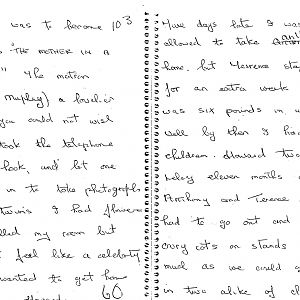 was to become 103
"THE MOTHER IN A
" The matron
Murphy) a lovelier
you could not wish
took the telephone
hook, and let one
in to take photographs
twins I had flowers
lled my room but
t feel like a celebrity
wanted to get home
60
Five days late I was
allowed to take Anth
home, but Terence stay
for an extra week
was six pounds in w
well by then I had
children. Howard two
Lesley eleven months a
Anthony and Terence
had to go out and
more cots on stands
much as we could g
in two alike of cl